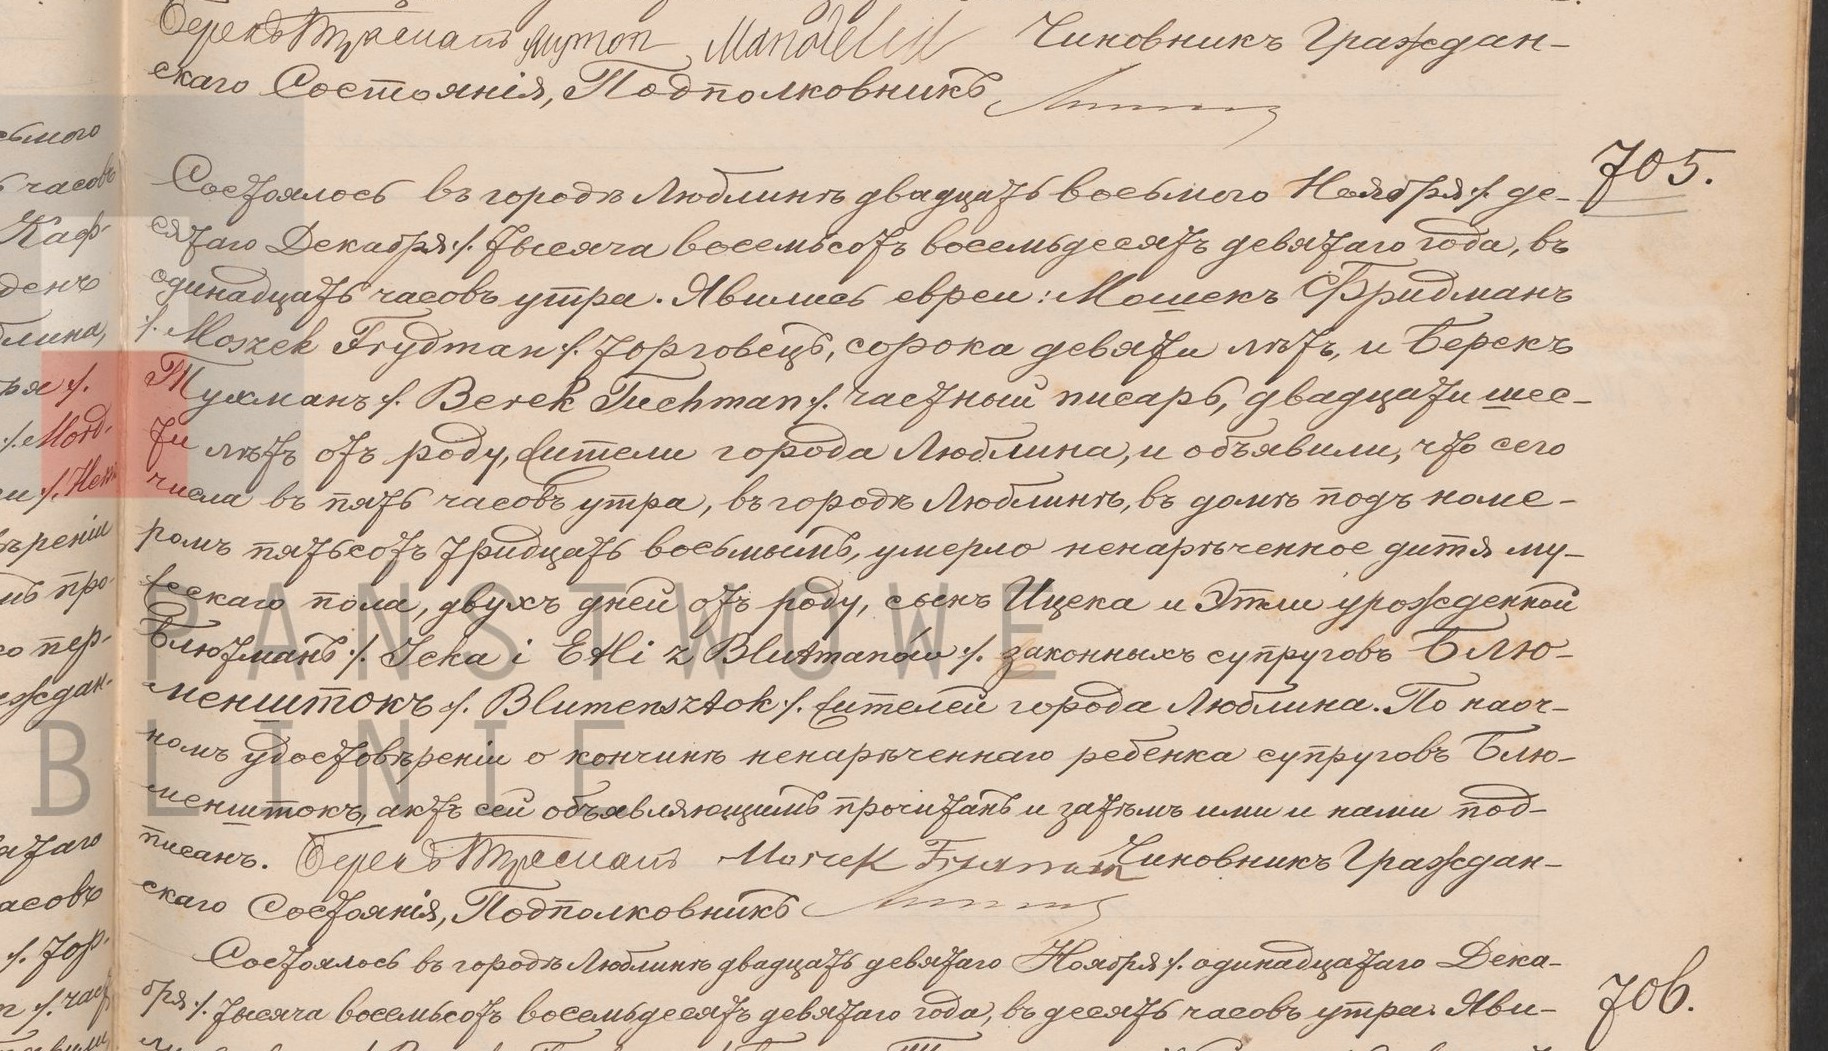 Берекъ Тухманъ Szymon Mandelkir Чиновникъ Граждан-
скаго Состоянія, Подполковникъ
705.
Состоялось въ городѣ Люблинѣ двадцать восьмого Ноября /. де-
сятаго Декабря ./. тысяча восемьсотъ восемьдесятъ девятаго года, въ
одинадцать часовъ утра. Явились евреи: Мошекъ Фридманъ
/. Moszek Frydman /. торговецъ, сорока девяти лѣтъ, и Берекъ
Тухманъ /. Berek Tuchman /. частный писарь, двадцати шес-
ти лѣтъ отъ роду, жители города Люблина, и объявили, что сего
числа въ пять часовъ утра, въ городѣ Люблинѣ, въ домѣ подъ номе-
ромъ пятьсотъ тридцать восьмымъ, умерло ненарѣченное дитя му-
жескаго пола, двухъ дней отъ роду, сынъ Ицека и Этли урожденной
Блютманъ ./. Icka i Etli z Blutmanów ./. законныхъ супруговъ Блю-
менштокъ /. Blumensztok /. жителей города Люблина. По наоч-
номъ удостовѣреніи о кончинѣ ненарѣченнаго ребенка супруговъ Блю-
менштокъ, актъ сей объявляющимъ прочитанъ и затѣмъ ими и нами под-
писанъ. Берекъ Тухманъ Moszek Frydman Чиновникъ Граждан-
скаго Состоянія, Подполковникъ
706.
Состоялось въ городѣ Люблинѣ двадцать девятаго Ноября /. одинадцатаго Дека-
бря ./. тысяча восемьсотъ восемьдесятъ девятаго года, въ десять часовъ утра. Яви-
PAŃSTWOWE
BLINIE